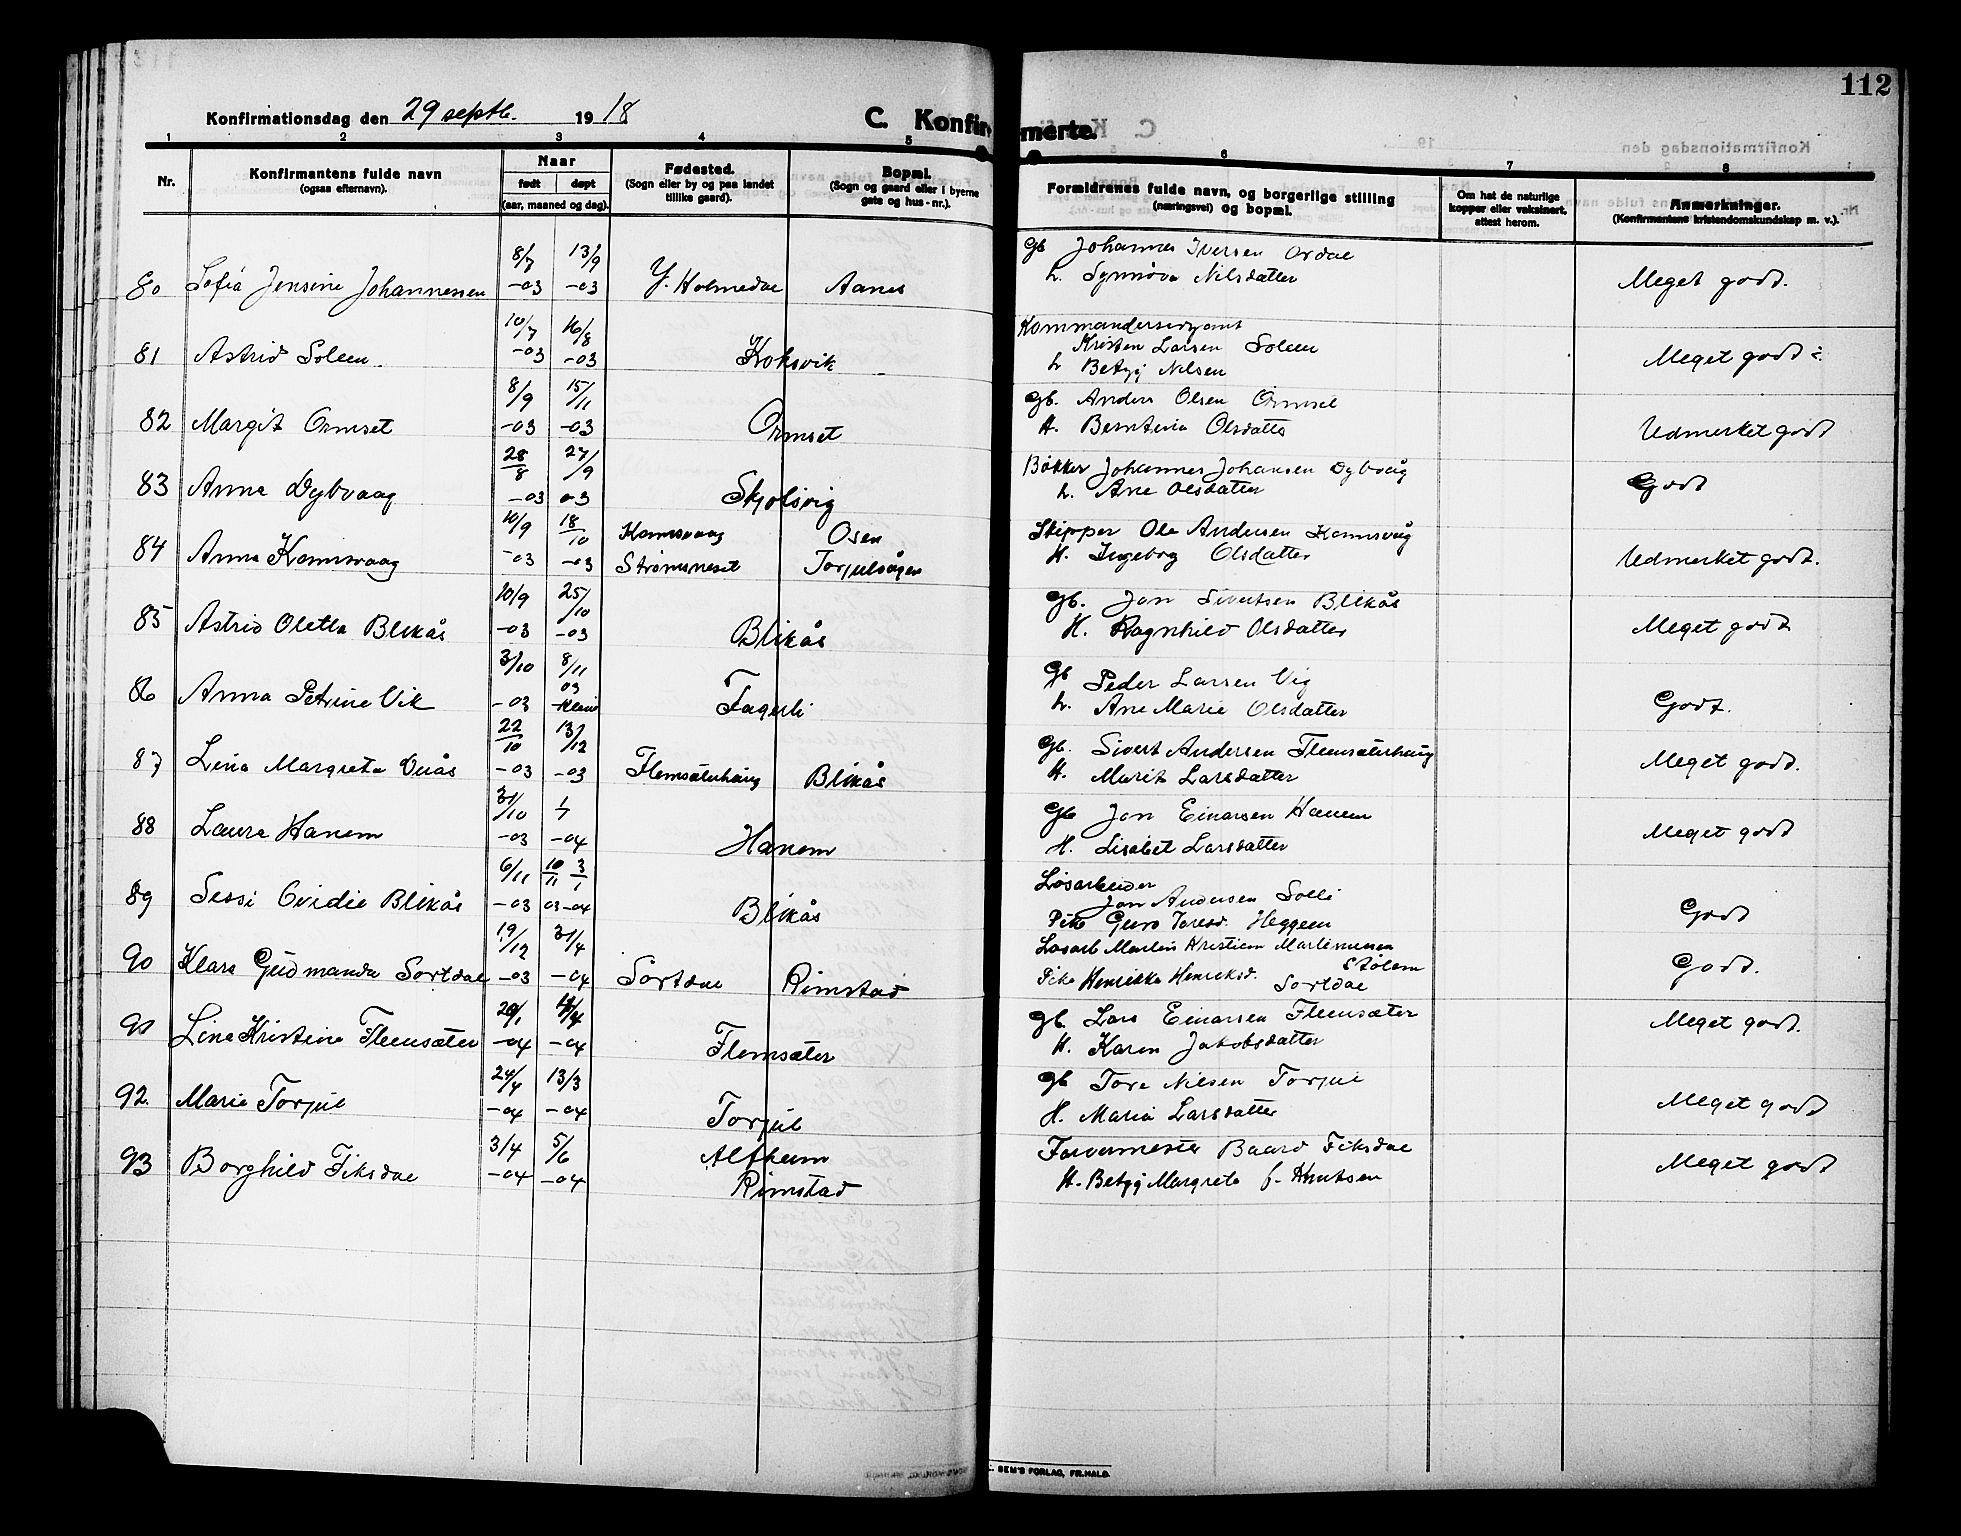 112
Konfirmationsdag den 29 septb. 1918
C. Konfirmerte.
1 2 3 4 5 6 7 8
Nr.
Konfirmantens fulde navn
(ogsaa efternavn).
Naar
født døpt
(aar, maaned og dag).
Fødested.
(Sogn eller by og paa landet
tillike gaard).
Bopæl.
(Sogn og gaard eller i byerne
gate og hus-nr.).
Forældrenes fulde navn, og borgerlige stilling
(næringsvei) og bopæl.
Om hat de naturlige
kopper eller vaksinert.
attest herom.
Anmerkninger.
(Konfirmantens kristendomskundskap m. v.).
8/7 13/9 Gb Johannes Iversen Ordal
80 Sofia Jensine Johannessen -03 -03 Y. Holmedal Aanes h. Synnøva Nilsdatter Meget godt.
10/7 16/8 Kommandersergeant
81 Astrid Solem. -03 -03 Koksvik Kristen Larsen Solem Meget godt
h Betzy Nilsen
8/9 15/11 Gb. Anders Olsen Ormset
82 Margit Ormset -03 -03 Ormset H. Berntina Olsdatte Udmerket godt
28/8 27/9 Bøkker Johannes Johansen Dybvåg
83 Anna Dybvaag -03 03 Skjølsvig h. Ane Olsdatter Godt
10/9 18/10 Kamsvaag Osen Skipper Ole Andersen Kamsvåg
84 Anna Kamsvaag -03 -03 Strømsneset Torjulvågen H. Ingeborg Olsdatter Udmerket godt.
10/9 25/10 Gb. Jon Sivertsen Blikås
85 Astrid Oletta Blikås -03 -03 Blikås H. Ragnhild Olsdatter Meget godt
3/10 8/11 Gb Peder Larsen Vig
03
86 Anna Petrine Vik -03 Fagerli h. Ane Marie Olsdatter Godt.
22/10 13/12 Gb. Sivert Andersen Flemsæterhaug
87 Lina Margreta Viiås -03 -03 Flemsæterhaug Blikås H. Marit Larsdatter Meget godt.
31/10 1/1 Gb Jon Einarsen Hanem
88 Laura Hanem -03 -04 Hanem H. Lisabet Larsdatter Meget godt
6/11 10/11 3/1 Løsarbeider
Jon Andersen Solli
89 Sessi Ovidie Blikås -03 03 -04 Blikås Pike Guro Toresd. Heggem Godt
19/12 3/4 Løsarb Martin Kristian Martinussen
Stølen
90 Klara Gudmanda Sortdal -03 -04 Sortdal Rimstad Pike Henrikka Henriksd. Sortdal Godt.
29/1 4/4 gb Lars Einarsen Flemsæter
91 Lina Kristina Flemsæter -04 -04 Flemsæter H. Karen Jakobsdatter Meget godt.
24/4 13/3 gb Tore Nilsen Torjul
92. Marie Torjul -04 -04 Torjul H. Maria Larsdatter Meget godt
3/4 5/6 Alfheim Farvermester Baard Fiksdal
93 Borghild Fiksdal -04 -04 Rimstad H. Betzy Margrete f. Knutsen Meget godt
SEM'S FORLAG, FR.HALD.